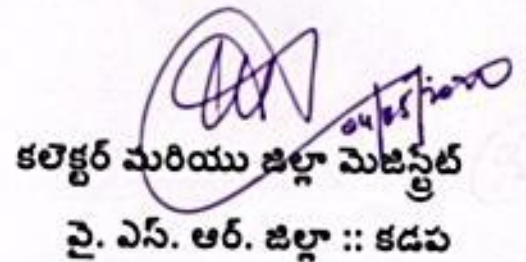 04/05/2020
కలెక్టర్ మరియు జిల్లా మెజిస్ట్రేట్
వై. ఎస్. ఆర్. జిల్లా :: కడప